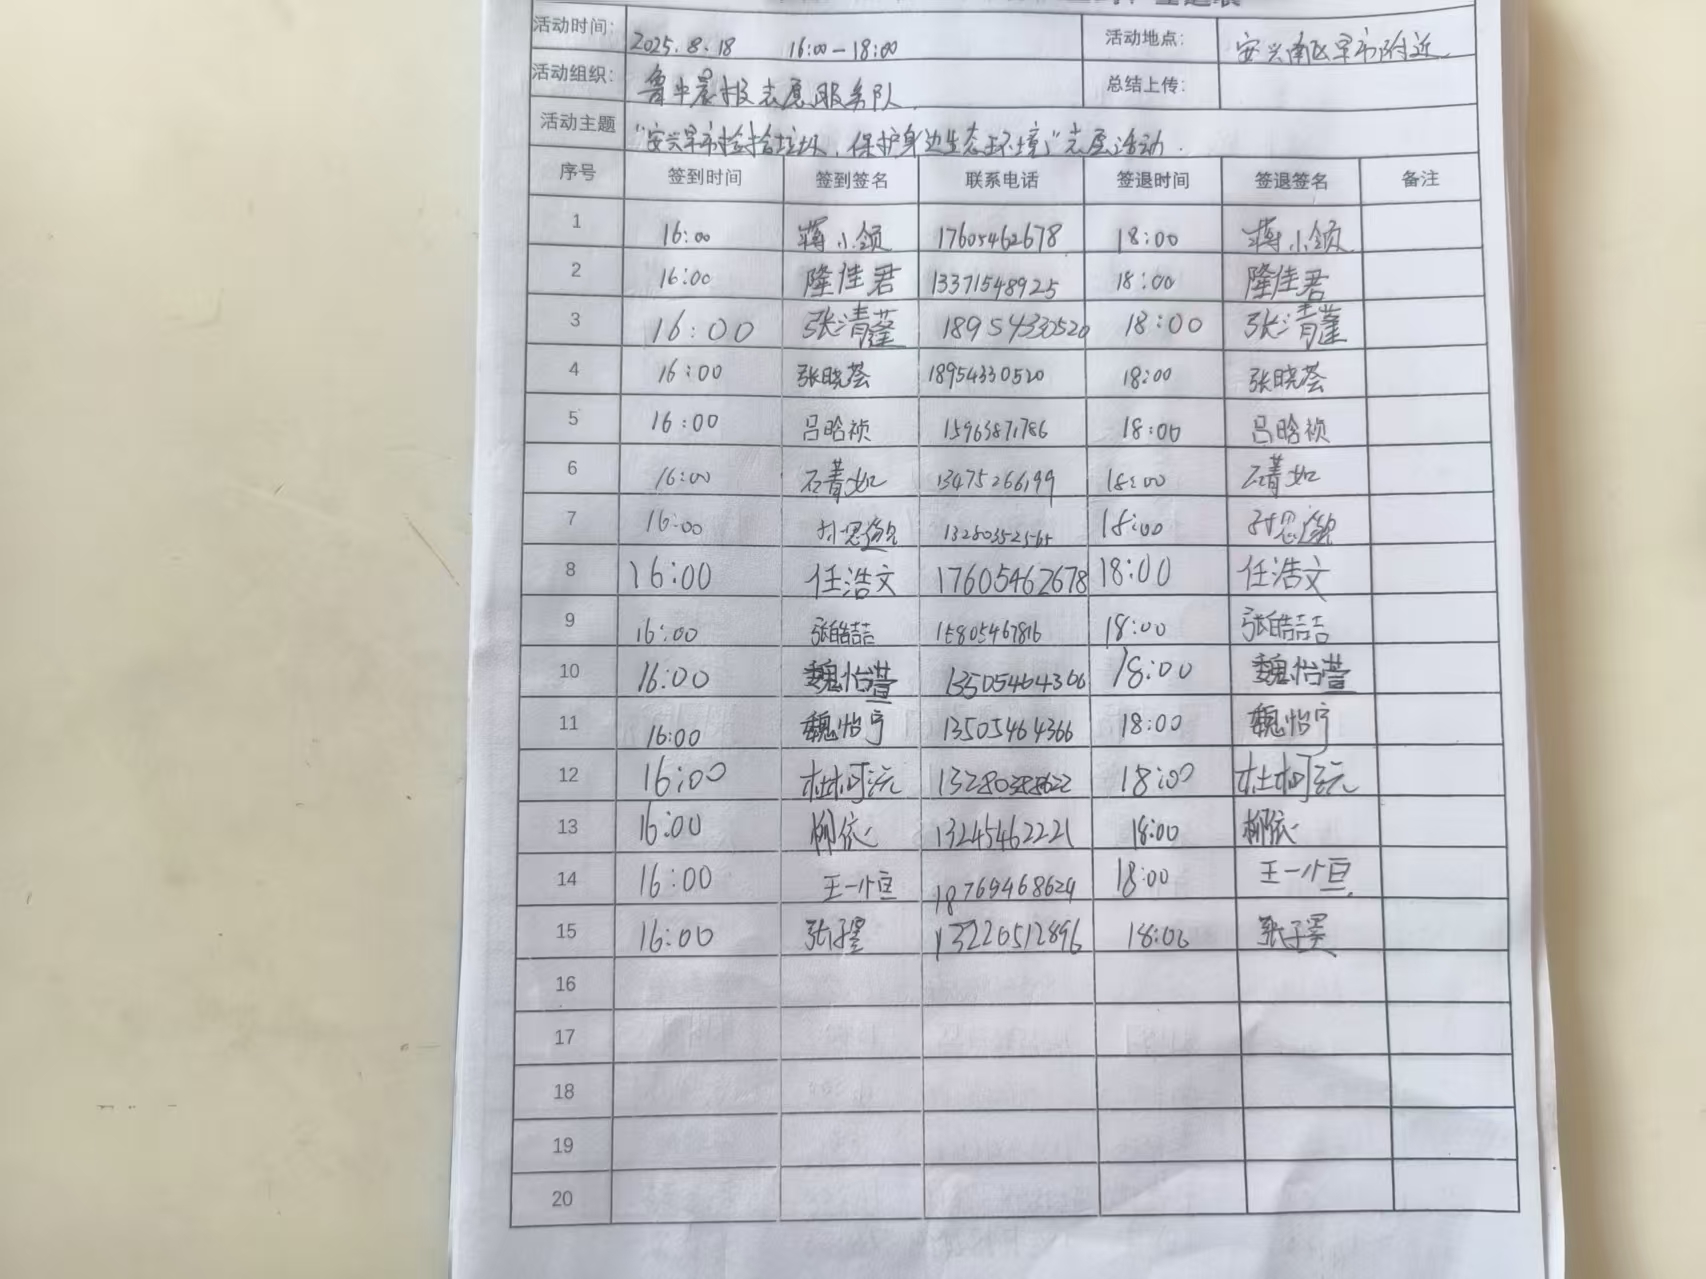 活动时间: 2025.8.18 16:00-18:00 活动地点: 安兴南区早市附近
活动组织: 鲁中晨报志愿服务队 总结上传:
活动主题 "安兴早市捡拾垃圾,保护身边生态环境"志愿活动.
序号 签到时间 签到签名 联系电话 签退时间 签退签名 备注
1 16:00 蒋小领 17605462678 18:00 蒋小领
2 16:00 隆佳君 13371548925 18:00 隆佳君
3 16:00 张清蓬 18954330520 18:00 张清蓬
4 16:00 张晓荟 18954330520 18:00 张晓荟
5 16:00 吕晗祯 15963871786 18:00 吕晗祯
6 16:00 石菁如 13475266199 18:00 石菁如
7 16:00 18:00
8 16:00 任浩文 17605462678 18:00 任浩文
9 16:00 张皓喆 15805467816 18:00 张皓喆
10 16:00 魏怡萱 13505464366 18:00 魏怡萱
11 16:00 魏怡宁 13505464366 18:00 魏怡宁
12 16:00 杜柯沅 18:00 杜柯沅
13 16:00 柳依 13245462221 18:00 柳依
14 16:00 王一恒 18769468624 18:00 王一恒
15 16:00 13220512896 18:00
16
17
18
19
20